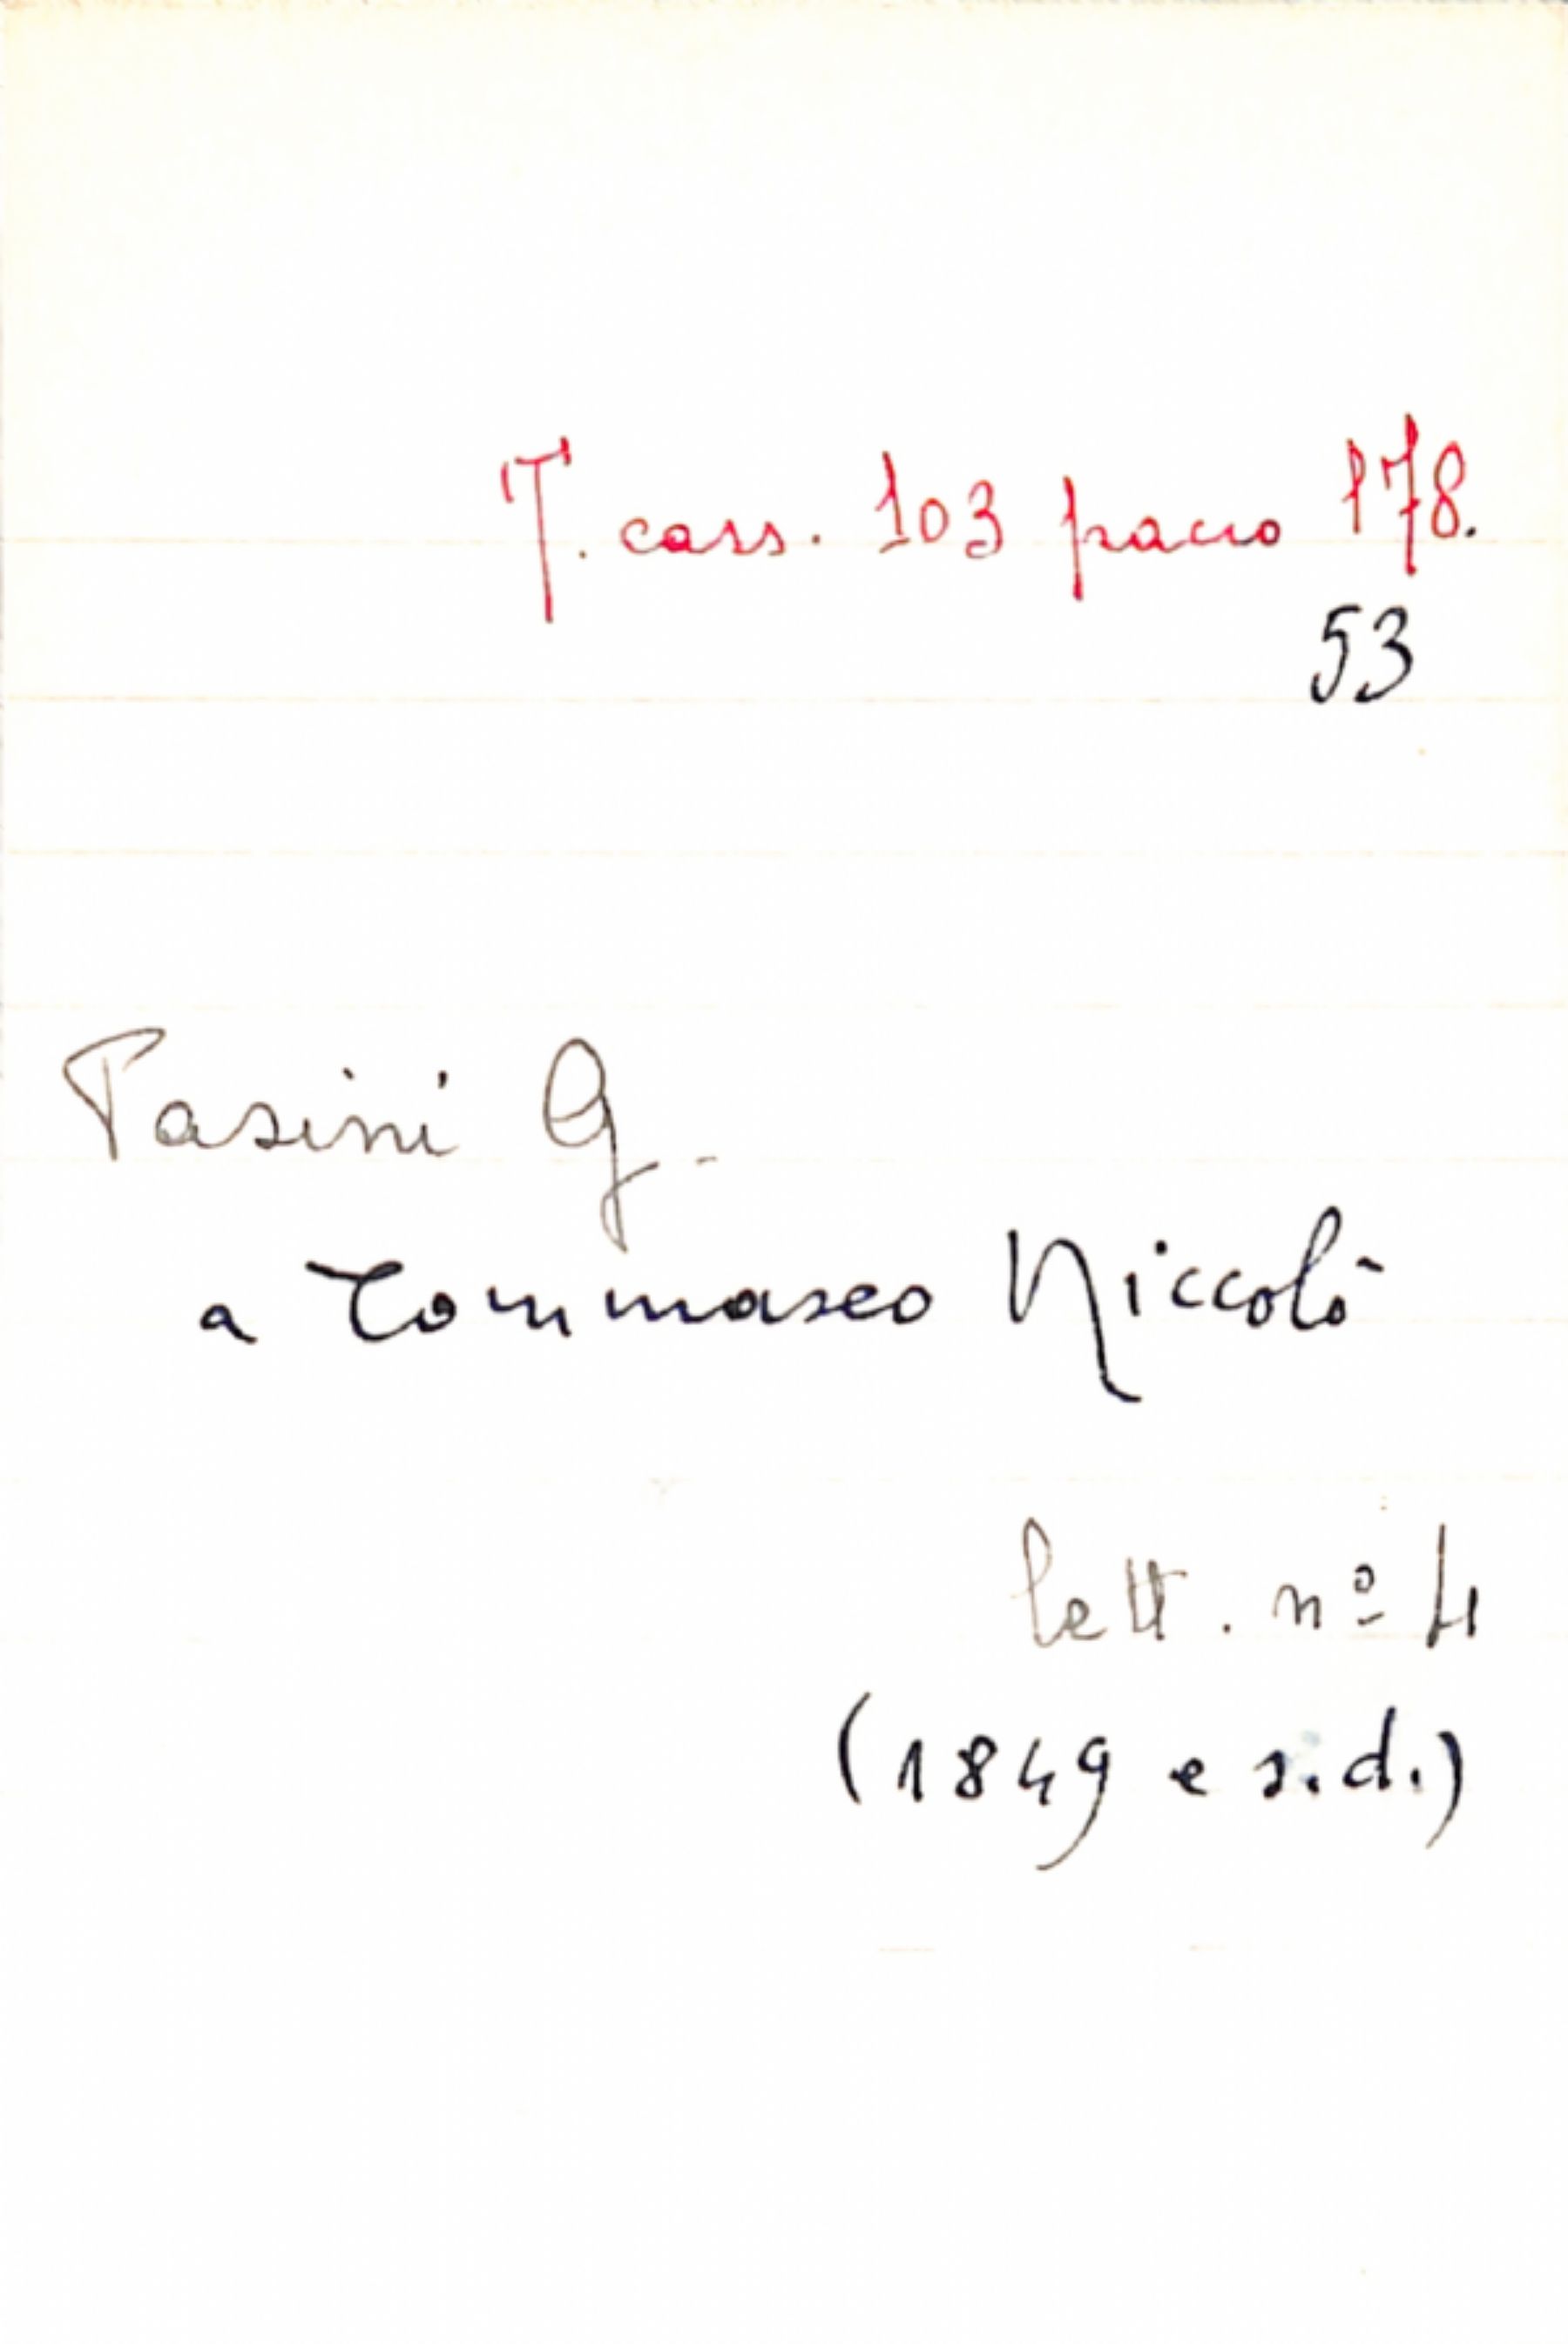 T. cass. 103 pacco 178.
53
Pasini G.
a Tommaseo Niccolò
lett. nº 4
(1849 e s.d.)